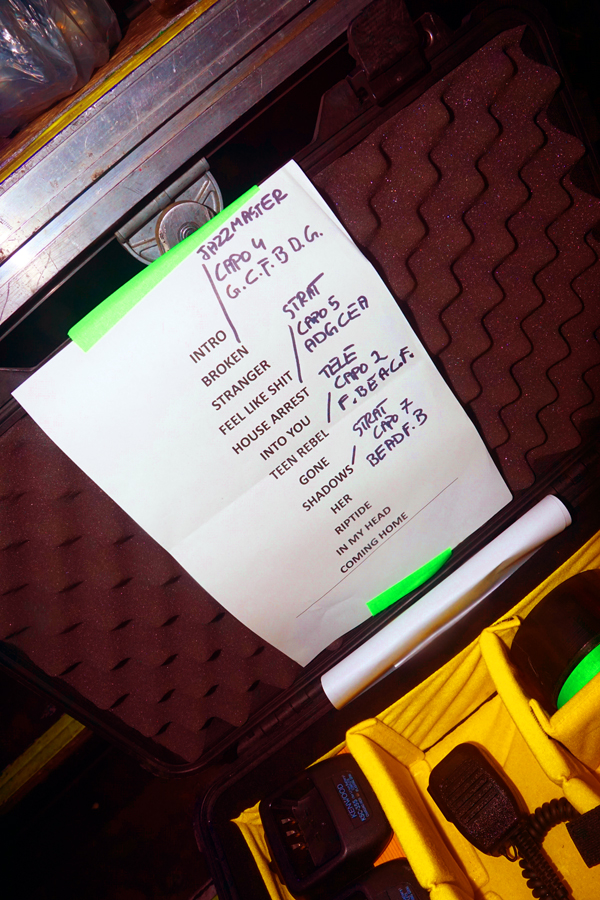 JAZZMASTER
CAPO 4
G.C.F.B D.G.
STRAT
CAPO 5
ADGCEA
TELE
CAPO 2
F.BEAC.F.
STRAT
CAPO 7
BEADF.B
INTRO
BROKEN
STRANGER
FEEL LIKE SHIT
HOUSE ARREST
INTO YOU
TEEN REBEL
GONE
SHADOWS
HER
RIPTIDE
IN MY HEAD
COMING HOME
KENWOOD